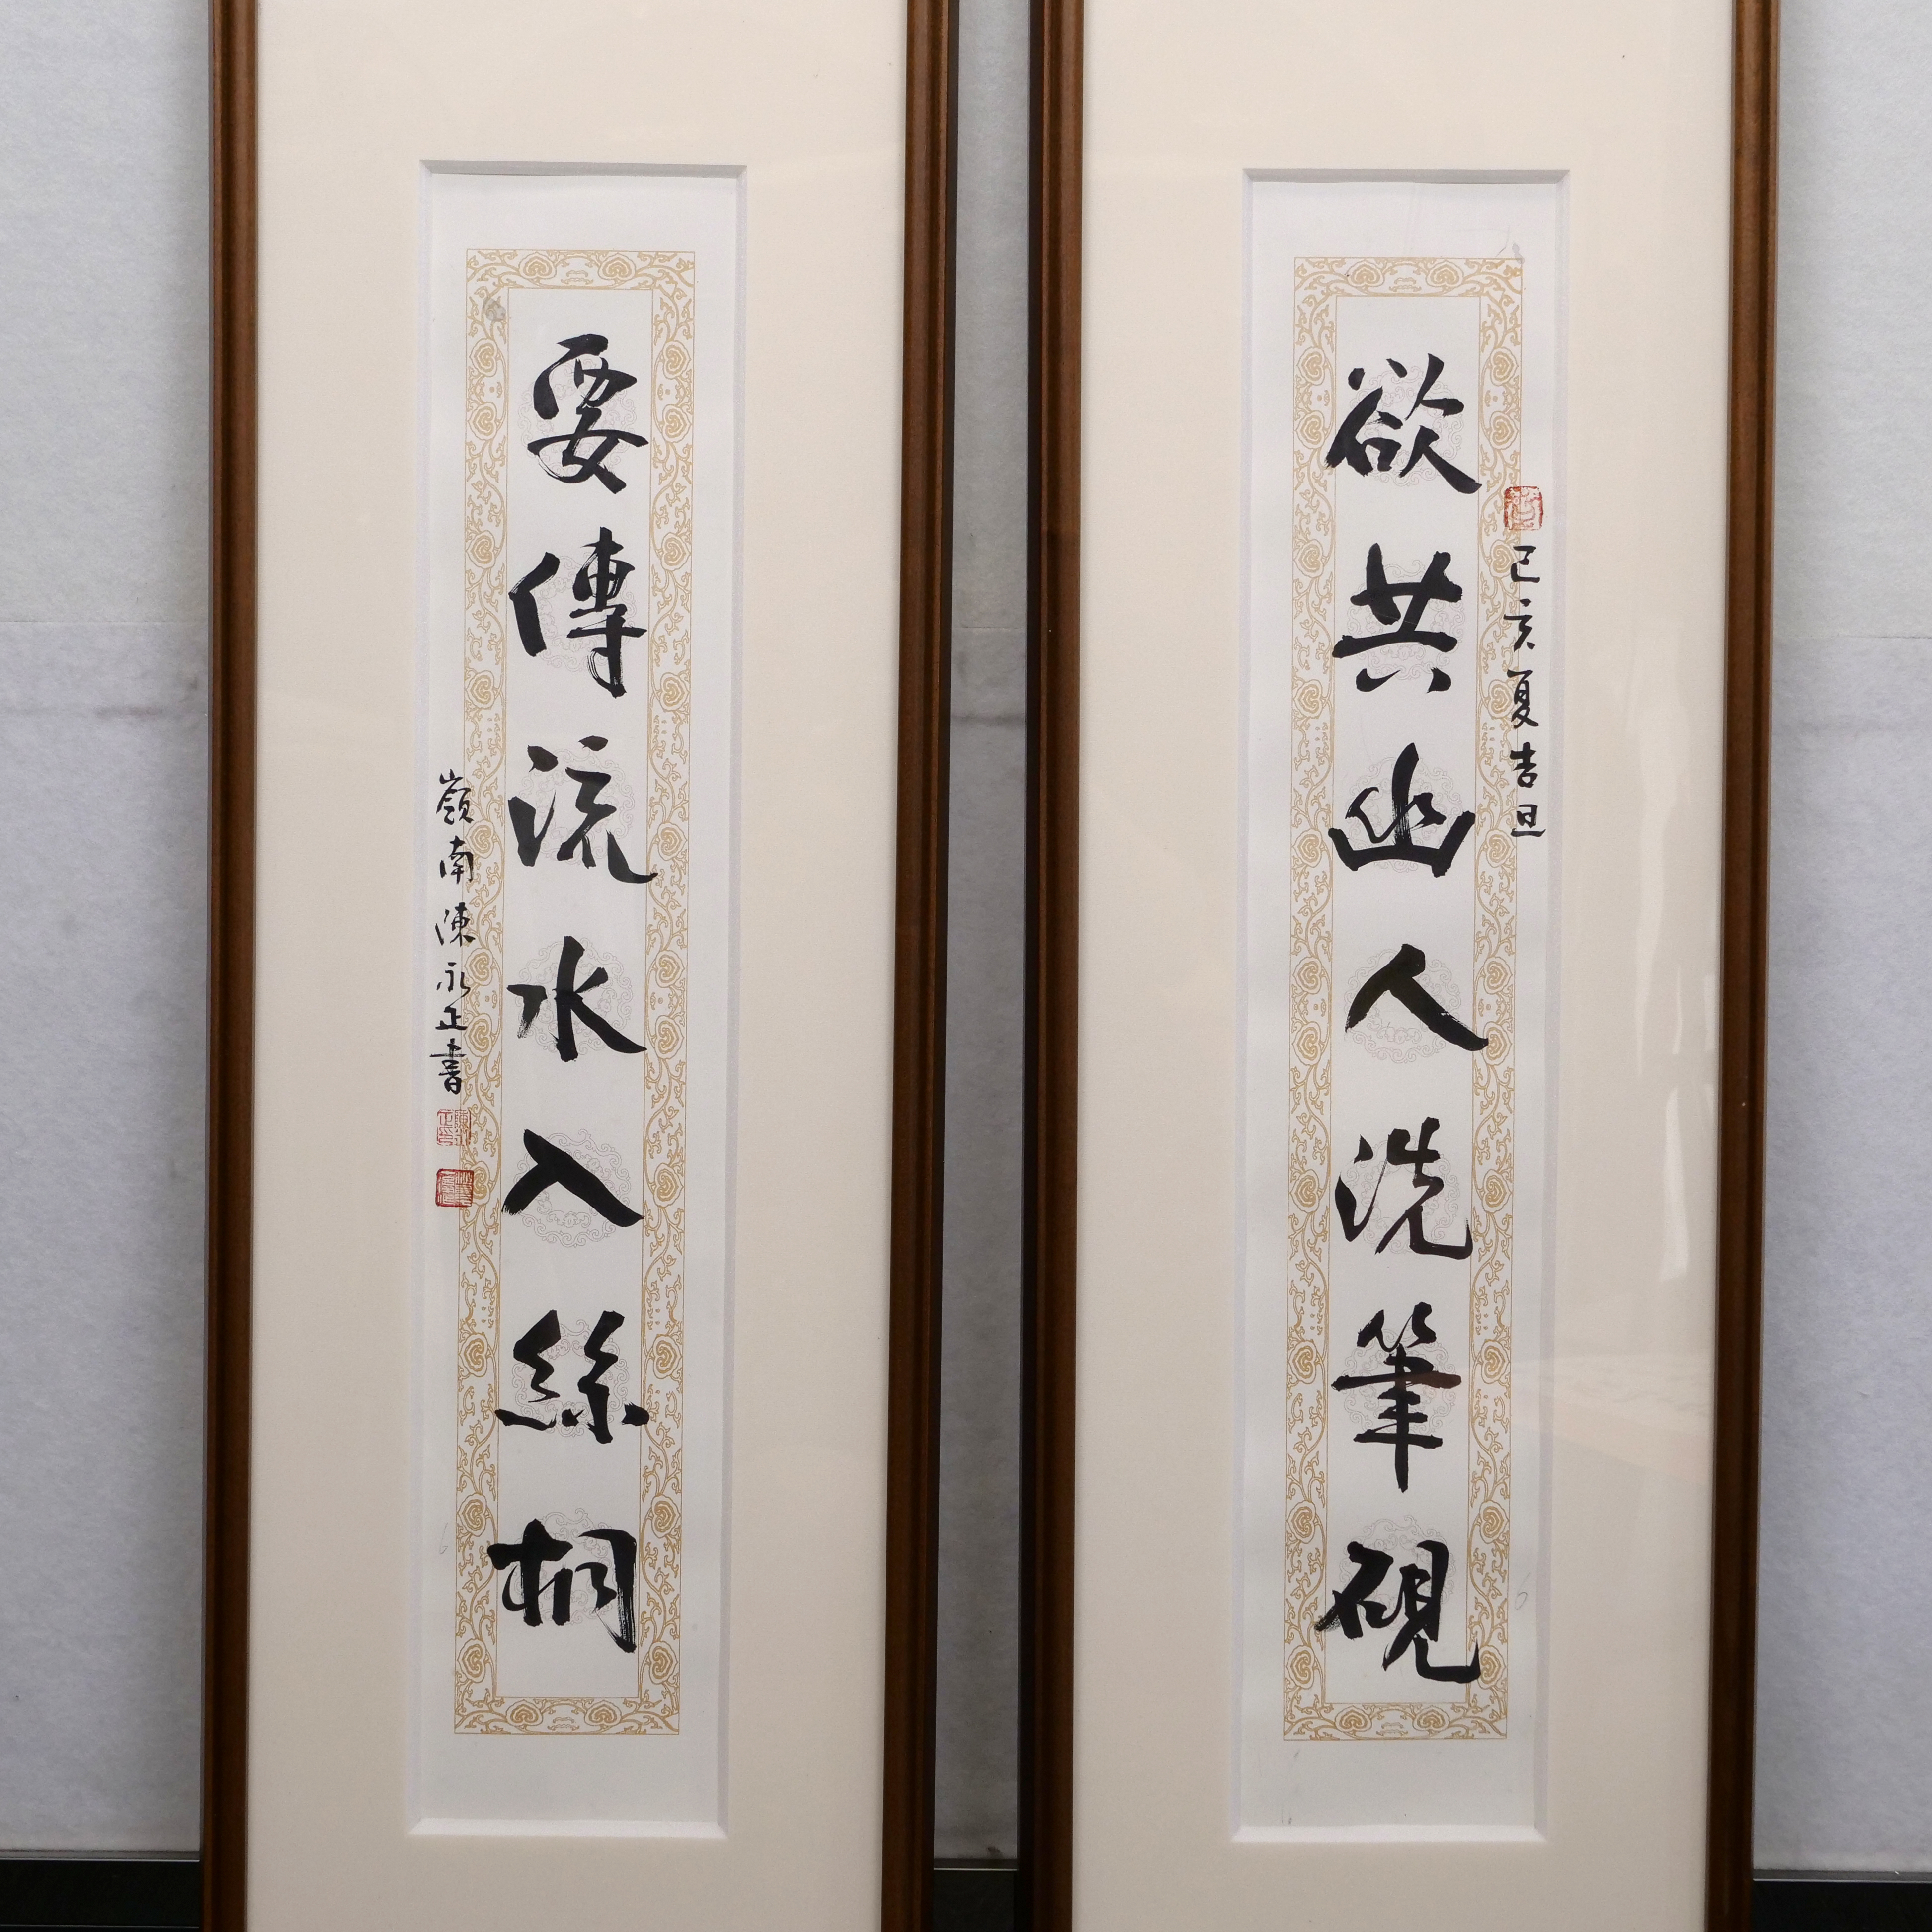 己亥夏吉旦
欲共幽人洗筆硯
要傳流水入絲桐
嶺南陳永正書